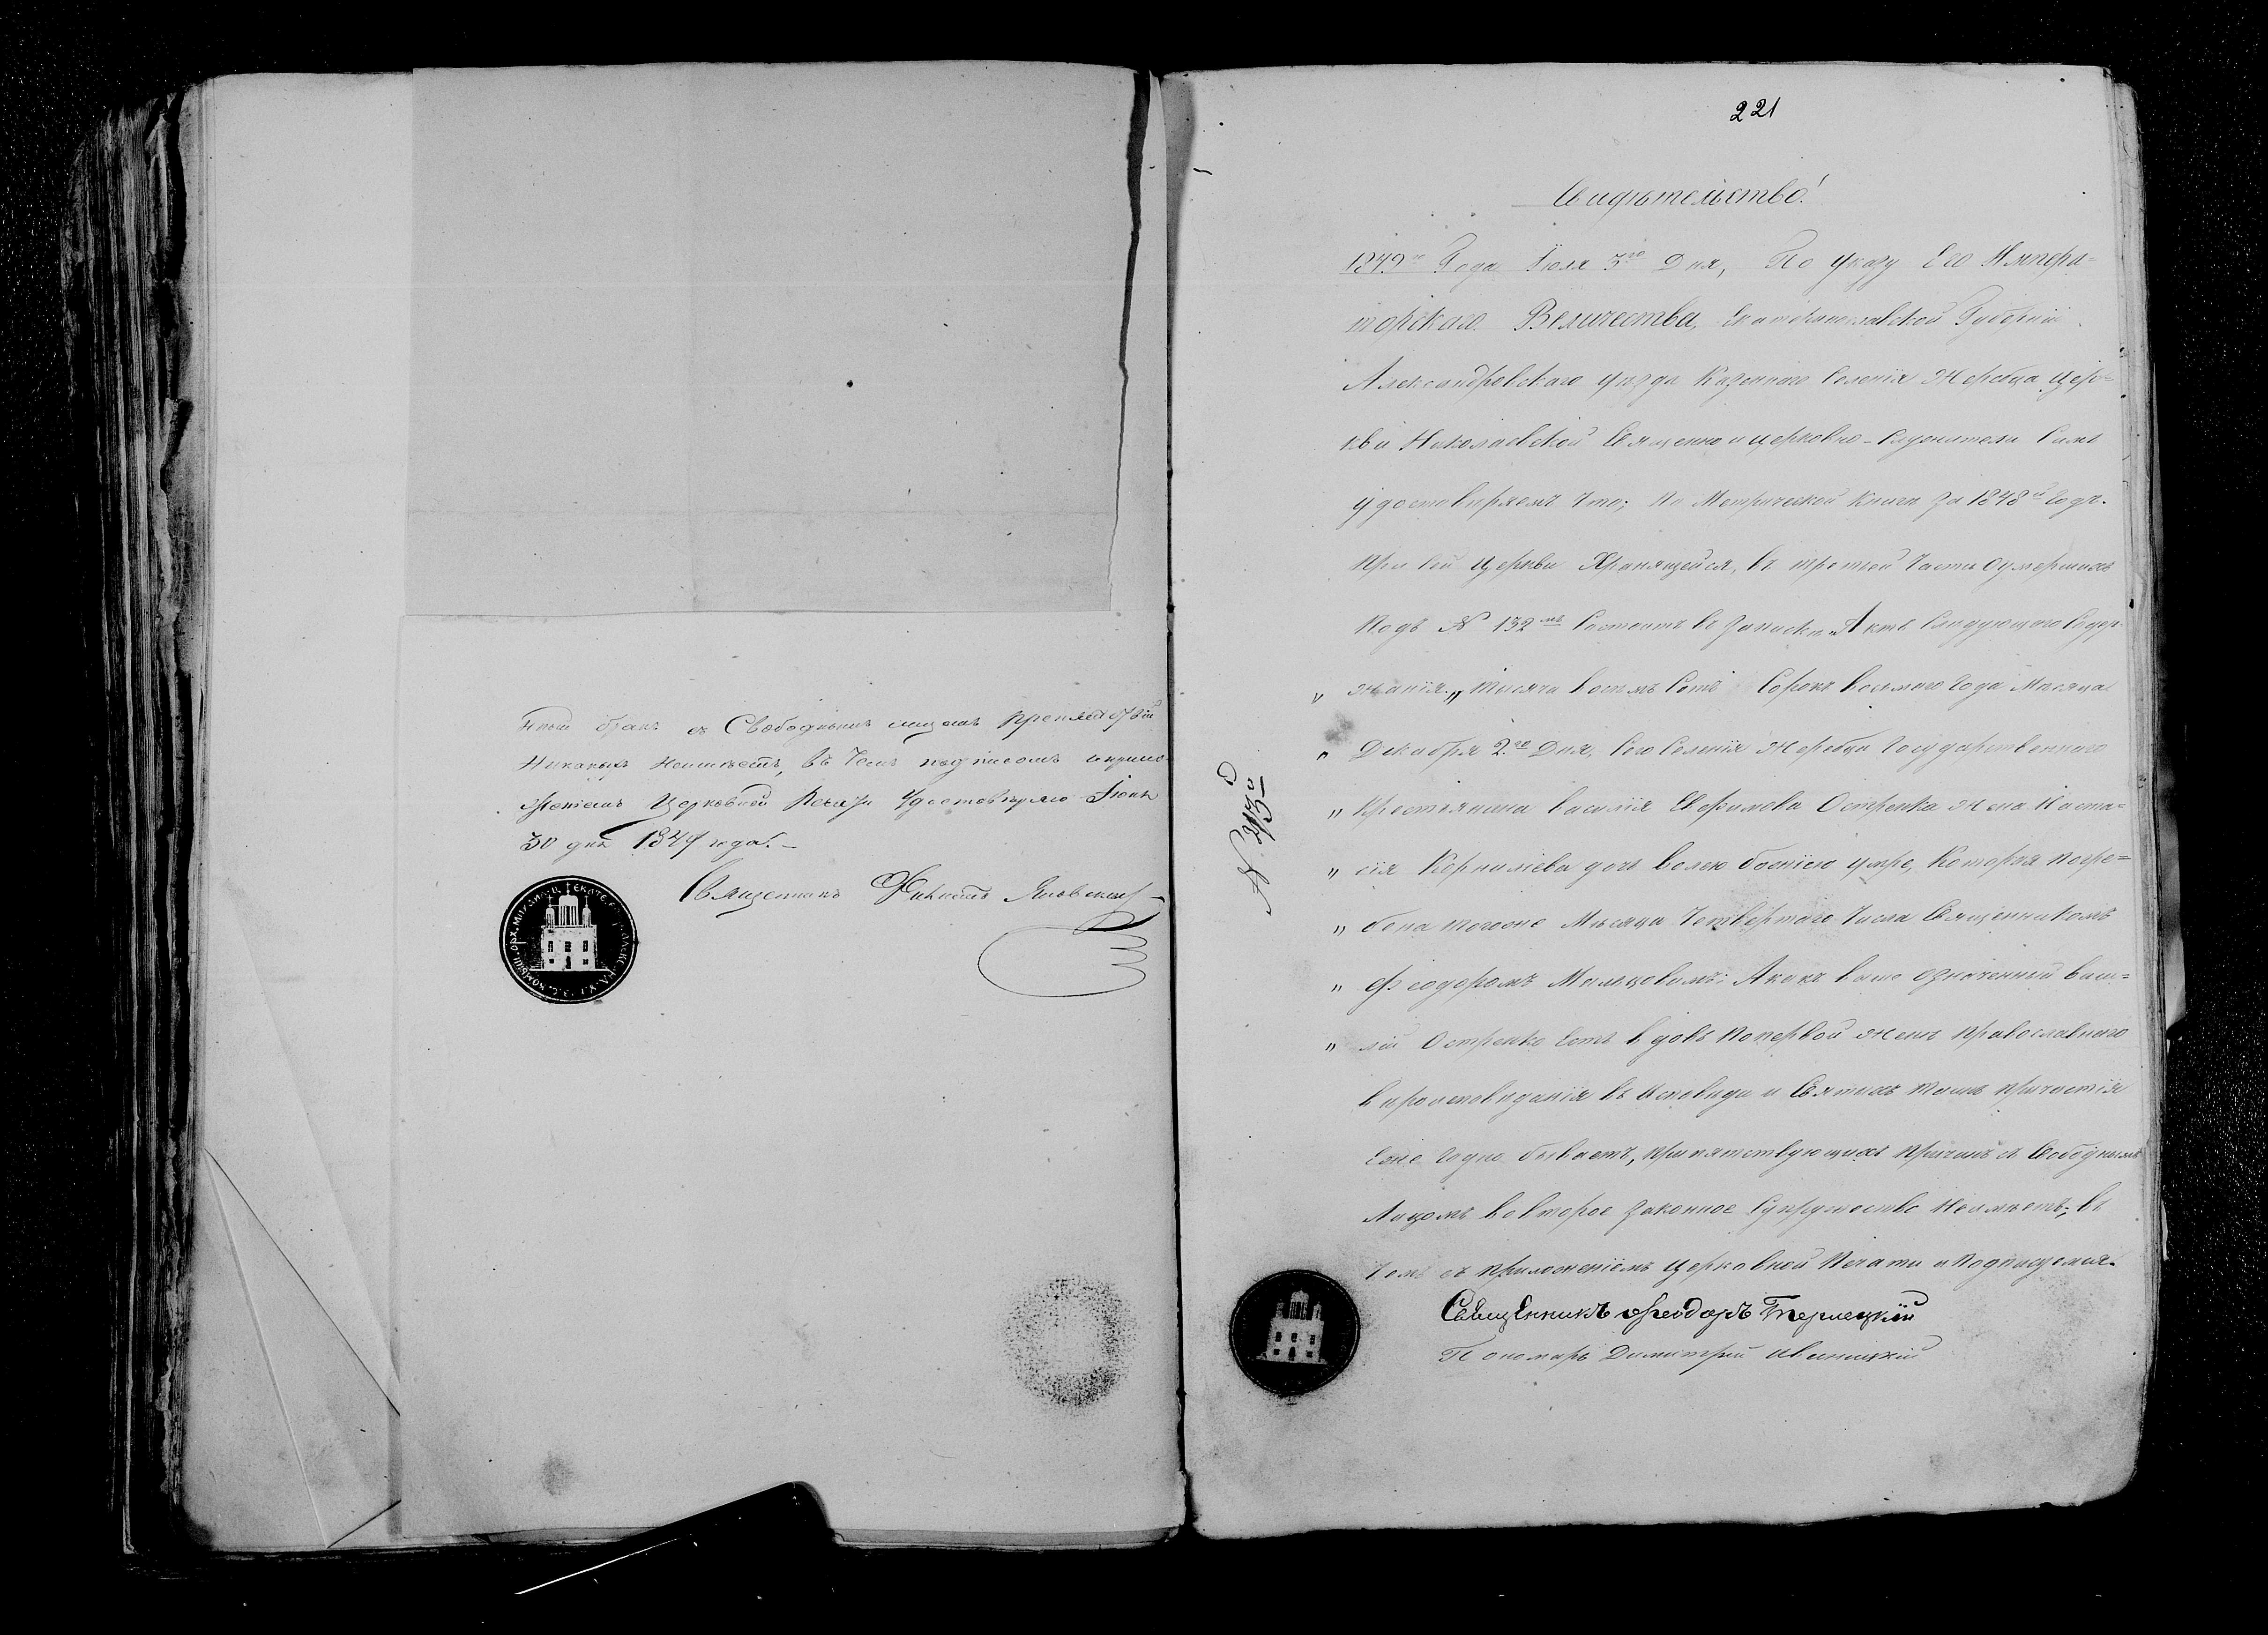 ный бракъ съ Свободнымъ лицемъ препятствiй
никакихъ неимѣетъ, въ чемъ подписомъ и прило-
женiемъ Церковной Печати Удостовѣряю Iюня
30 дня 1849 года. —
Священникъ
221
Свидѣтельство!
1849го Года Iюля 3го Дня, По Указу Его Импера=
торскаго Величества, Екатеринославской Губернiи
Александровскаго уѣзда Казеннаго Селенiя Жеребца Цер=
кви Николаевской Священно и церковно-служители Симъ
удостовѣряемъ что; По Метрической Книгѣ за 1848й Годъ.
При сей Церкви Хранящейся, въ третей Части оумершихъ
Подъ № 132мъ Состоитъ въ Запискѣ Актъ Слѣдующаго Содер-
„ жанiя: „Тысяча восемъ Сотъ Сорокъ восмаго Года Мѣсяца
„ Декабря 2го Дня, Сего Селенiя Жеребца Государственнаго
„ Крестьянина Василiя Ефимова Остренка Жена Наста=
„ сiя Корнилiева дочь волею божiею умре, Которая погре=
„ бена тогоже Мѣсяца Четвертаго Числа Священникомъ
„ Феодоромъ А какъ выше означенный Васи=
„ лiй Остренко Есть вдовъ Попервой женѣ православнаго
вѣроисповѣданiя въ Исповѣди и Святыхъ Таинъ причастiя
Еже годно бываетъ, препятствующихъ причинъ съ Свободнымъ
Лицомъ вовторое Законное Супружество Неимѣетъ; въ
Чемъ съ приложенiемъ Церковной Печати и Подписуемся.
Священникъ Феодоръ Терлецкiй
Пономарь Димитрiй